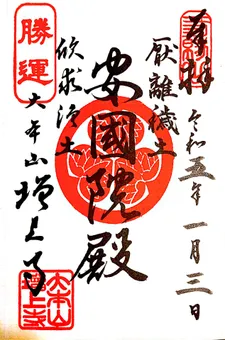 奉拝
令和五年一月三日
厭離穢土
安國院殿
欣求浄土
勝運
大本山増上寺
大本山
増上寺